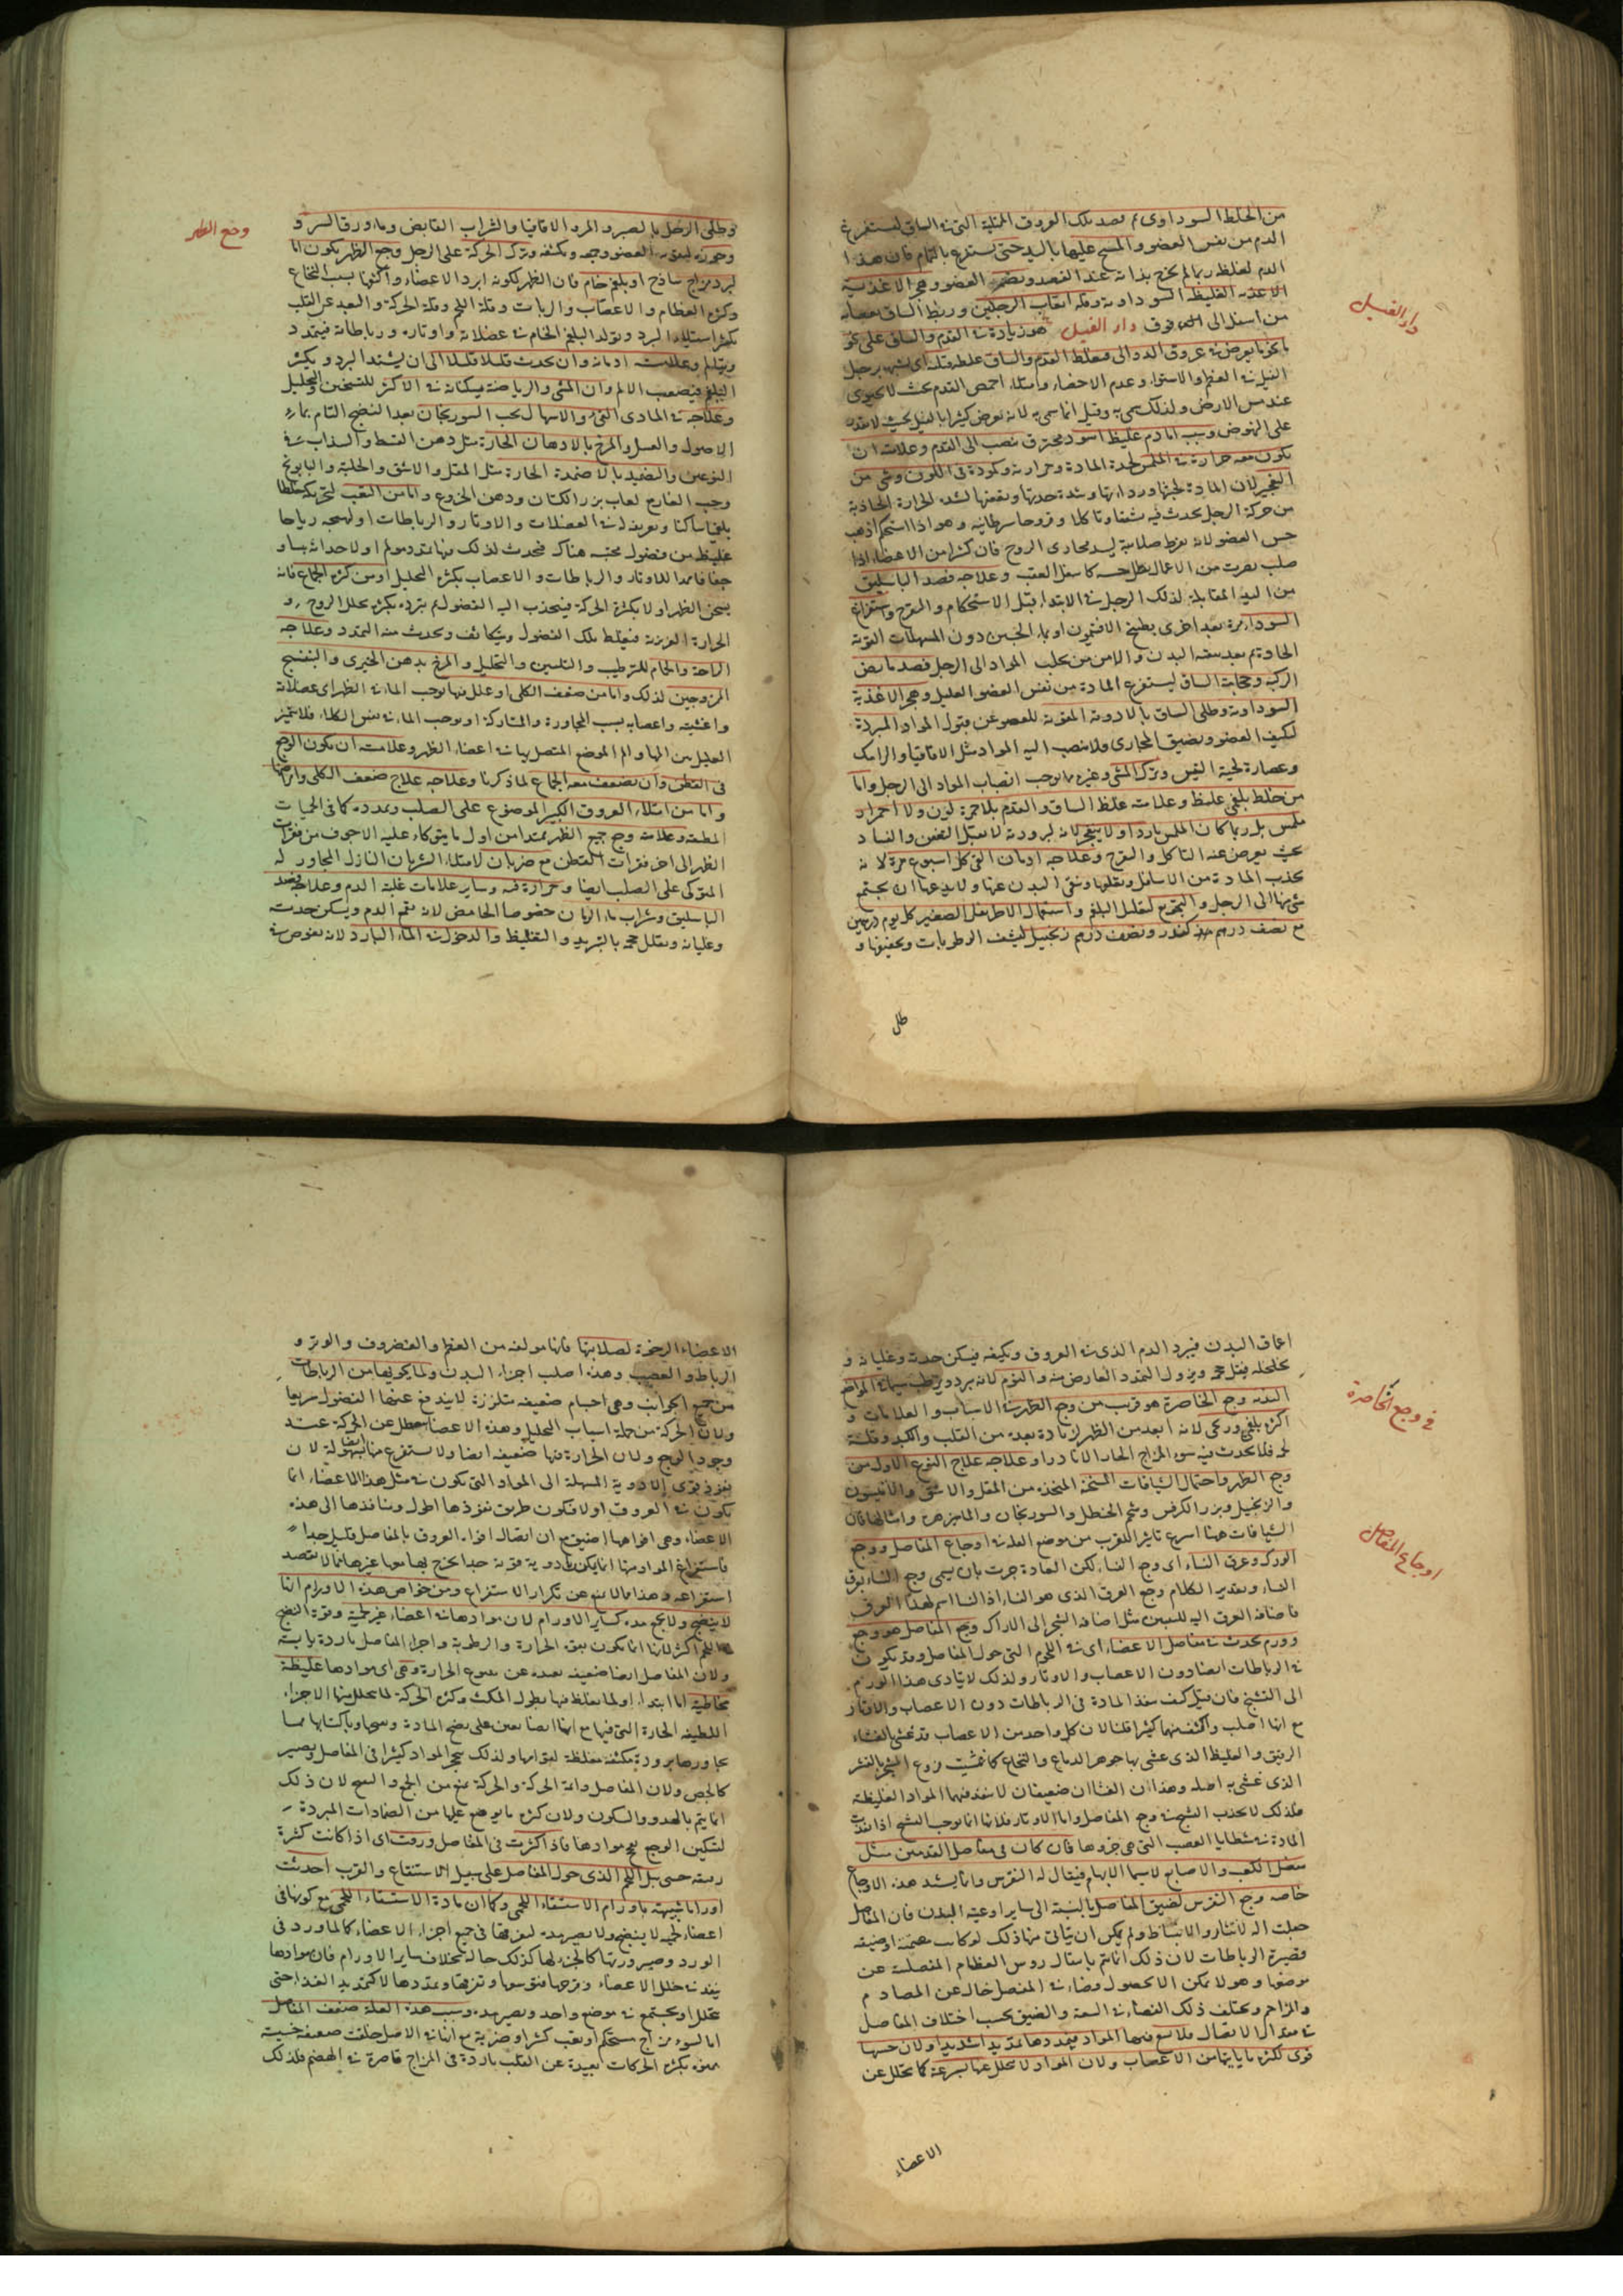 من الخلط السوداوى ثم فصد تلك العروق الممتلية التى فى الساق ليستفرغ
الدم من نفس العضو والمسح عليها باليد حتى يستفرغ بالتمام فان هذا
الدم لغلظه ربما لم يخرج بذاته عند الفصد وهجر الاغذية
الاغذية الغليظة السوداوية وقلة اتعاب الرجلين وربط الساق بعصابة
من اسفل الى فوق دار الفيل هو زيادة فى القدم والساق على نحو
ما يعرض فى عروق الدوالى فيغلظ القدم والساق
دار الفيل
عند مس الارض ولذلك سمى به وقيل انما سمى به لانه يعرض كثيرا بالفيل بحيث لا يقدر
على النهوض وسببه اما دم غليظ اسود محترق ينصب الى القدم وعلامته ان
يكون معه حرارة فى الملمس لحدة المادة وحرارته وكمودة فى اللون
من حركة الرجل يحدث فيه شقاوتا كلا وقروحا سرطانية وهو اذا استحكم اذهب
حس العضو لانه بفرط صلابته يسد مجارى الروح فان كثيرا من الاعضاء اذا
من اليد المقابلة لذلك الرجل فى الابتداء قبل الاستحكام والتقرح واستفراغ
السوداء مرة بعد اخرى بطبخ الافتيمون او بماء الجبن دون المسهلات القوية
الحادة ثم بعد تنقية البدن والامن من جلب المواد الى الرجل فصد مابض
الركبة وحجامة الساق ليستفرغ المادة من نفس العضو العليل وهجر الاغذية
السوداوية وطلى الساق بالادوية المقوية للعضو عن قبول المواد المبردة
لتكثيف العضو وتضيق المجارى ولا ينصب اليه المواد مثل الاقاقيا والرامك
وعصارة لحية التيس وترك المشى وغيره مما يوجب انصباب المواد الى الرجل واما
من خلط بلغمى غليظ وعلامته غلظ الساق والقدم بلا حمرة لون ولا احمرار
ملمس بل ربما كان الملمس باردا ولا ينفجر لانه لبرودته لا يقبل التعفن والفساد
بحيث يعرض عنه التاكل والتقرح وعلاجه ادمان القئ كل اسبوع مرة لانه
يجذب المادة من الاسافل وينقيها وينقى البدن عنها ولا يدعها ان يجتمع
شئ منها الى الرجل والتجوع لتقليل البلغم واستعمال الاطريفل الصغير كل يوم درهمين
مع نصف درهم كندر ونصف درهم زنجبيل لينشف الرطوبات ويجففها و
طلى
وطلى الرجل بالصبر والمر والاقاقيا والشراب القابض وماء ورق السرو
وجوزه ليقوى العضو ويجمعه ويكثفه وترك الحركة على الرجل وجع الظهر يكون اما
وجع الظهر
لبرد مزاج ساذج او بلغم خام فان الظهر لكونه ابرد الاعضاء واكثفها بسبب النخاع
وكثرة العظام والاعصاب والرباطات وقلة اللحم وقلة الحركة والبعد عن القلب
يكثر استيلاء البرد وتولد البلغم الخام فى عضلاته واوتاره ورباطاته فيتمدد
ويتالم وعلامته ادمانه وان يحدث قليلا قليلا الى ان يشتد البرد ويكثر
البلغم فيصعب الالم وان المشى والرياضة يسكنانه فى الاكثر للتسخين والتحليل
وعلاجه فى المادى القئ والاسهال بحب السورنجان بعد النضج التام بماء
الاصول والعسل والمرخ بالادهان الحارة مثل دهن القسط والسذاب فى
النوعين والتضميد بالاضمدة الحارة مثل المقل والاشق والحلبة والبابونج
وحب الغار مع لعاب بزر الكتان ودهن الخروع واما من التعب لتحريكه خلطا
بلغميا ساكنا وتفريقه فى العضلات والاوتار والرباطات او لتهييجه رياحا
غليظة من فضول محتبسة هناك فيحدث لذلك منها تمدد مولم او لاحداثه يبسا و
جفافا ممددا للاوتار والرباطات والاعصاب بكثرة التحليل او من كثرة الجماع فانه
يسخن الظهر اولا بكثرة الحركة فينجذب اليه الفضول ثم يبرده بكثرة تحلل الروح و
الحرارة الغريزية فيغلظ تلك الفضول ويتكاثف ويحدث منه التمدد وعلاجه
الراحة والحمام للترطيب والتليين والتحليل والمرخ بدهن الخيرى والبنفسج
الممزوجين لذلك واما من ضعف الكلى او علل فيها يوجب الما فى الظهر اى عضلاته
واغشيته واعصابه بسبب المجاورة والمشاركة او يوجب الما فى نفس الكلاء فلا يتميز
العليل بين المها والم الموضع المتصل بها فى اعضاء الظهر وعلامته ان يكون الوجع
فى القطن وان يضعف معه الجماع لما ذكرنا وعلاجه علاج ضعف الكلى وامراضها
واما من امتلاء العروق الكبير الموضوع على الصلب وتمدده كما فى الحميات
المطبقة وعلامته وجع جميع الظهر يمتد من اول ما يتوكاء عليه الاجوف من فقرات
الظهر الى اخر فقرات القطن مع ضربان لامتلاء الشريان النازل المجاور له
المتوكى على الصلب ايضا وحرارة فيه وساير علامات غلبة الدم وعلاجه فصد
الباسليق وشراب ماء الرمان خصوصا الحامض لانه يقمع الدم ويسكن حدته
وغليانه ويقلل حجمه بالتبريد والتغليظ والدخول فى الماء البارد لانه يغوص فى
اعماق البدن فيبرد الدم الذى فى العروق ويكيفه فيسكن حدته وغليانه و
تخلخله فيقل حجمه ويزول التمدد العارض منه والنوم لانه يبرد ويرطب
البدن وجع الخاصرة هو قريب من وجع الظهر فى الاسباب والعلامات و
فى وجع الخاصرة
اكثره بلغمى وريحى لانه ابعد من الظهر زيادة بعده من القلب والكبد وقلة
قلما يحدث فيه سوء المزاج الحار الا نادرا وعلاجه علاج النوع الاول من
وجع الظهر واحتمال الشيافات المسخنة المتخذة من المقل والاشق والافتيمون
والزنجبيل وبزر الكرفس وشحم الحنظل والسورنجان والماهيزهره وامثالها فان
الشيافات هنا اسرع تاثيرا للقرب من موضع العلة فى اوجاع المفاصل ووجع
اوجاع المفاصل
الورك وعرق النساء اى وجع النساء لكن العادة جرت بان يسمى وجع النساء بعرق
النساء وتقدير الكلام وجع العرق الذى هو النساء اذ النسا اسم لهذا العرق
فاضافة العرق اليه للتبيين مثل اضافة الشجر الى الاراك وجع المفاصل هو وجع
وورم يحدث فى مفاصل الاعضاء اى فى اللحوم التى حول المفاصل وقد يكون
فى الرباطات ايضا دون الاعصاب والاوتار ولذلك لا يتادى هذا الورم
الى التشنج فان قيل كيف ينفذ المادة فى الرباطات دون الاعصاب والاوتار
مع انها اصلب واكثف منهما كثيرا قلنا لان كل واحد من الاعصاب قد غشى بالغشاء
الرقيق والغليظ الذى غشى بها جوهر الدماغ والنخاع كما غشيت فروع الشجر بالقشر
الذى غشى به اصله وهذان الغشاان ضعيفان لا ينفذ فيهما المواد الغليظة
فلذلك لا يحدث التشنج فى وجع المفاصل واما الاوتار فلانها انما يوجب التشنج اذا نفذت
المادة فى شظايا العصب التى هى جزوها فان كان فى مفاصل القدمين مثل
مفصل الكعب والاصابع لا سيما الابهام فيقال له النقرس وانما يشتد هذه الاوجاع
خاصة وجع النقرس لضيق المفاصل بالنسبة الى ساير اوعية البدن فان المفاصل
جعلت آلة للانثناء والانبساط ولم يمكن ان يتاتى منها ذلك لو كانت مصمتة او ضيقة
قصيرة الرباطات لان ذلك انما يتم بانتقال روس العظام المتصلة عن
موضعها وهو لا يمكن الا بحصول فضاء فى المفصل خال عن المصادم
والمزاحم ويختلف ذلك الفضاء فى السعة والضيق بحسب اختلاف المفاصل
فى مقدار الانتقال فلا يسع فيها المواد فيمددها تمديدا شديدا ولان حسها
قوى لكثرة ما ياتيها من الاعصاب ولان المواد لا تتحلل عنها بسرعة كما تتحلل عن
الاعضاء
الاعضاء الرخوة لصلابتها فانها مولفة من العظم والغضروف والوتر و
الرباط والعصب وهذه اصلب اجزاء البدن ولما يحويها من الرباطات
من جميع الجوانب وهى اجسام ضعيفة متلززة لا يندفع عنها الفضول سريعا
ولان الحركة من جملة اسباب التحليل وهذه الاعضاء تتعطل عن الحركة عند
وجود الوجع ولان الحرارة فيها ضعيفة ايضا ولا يستفرغ منها ايضا بسهولة لان
نفوذ قوى الادوية المسهلة الى المواد التى يكون فى مثل هذه الاعضاء انما
يكون فى العروق اولا فيكون طريق نفوذها اطول ومنافذها الى هذه
الاعضاء وهى افواهها اضيق مع ان اتصال افواه العروق بالمفاصل قليل جدا
فاستفراغ المواد منها انما يمكن بادوية قوية جدا يخرج بها معها غيرها مما لا يقصد
استفراغه وهذا مما يمنع عن تكرار الاستفراغ ومن خواص هذه الاورام انها
لا ينضج ولا يجمع مدة كساير الاورام لان موادها فى اعضاء غير لحمية وقوة النضج
فى اللحم اكثر لانها انما يكون بقوة الحرارة والرطوبة واجزاء المفاصل باردة يابسة
ولان المفاصل ايضا ضعيفة بعيدة عن ينبوع الحرارة وهى اى موادها غليظة
مخاطية اما ابتداء او لما يغلظ فيها بطول المكث وكثرة الحركة لما يتحلل فيها الاجزاء
اللطيفة الحارة التى فيها مع انها ايضا يعين على نضج المادة
يجاورها برودة مكثفة مغلظة لقوامها ولذلك يتحجر المواد كثيرا فى المفاصل ويصير
كالجص ولان المفاصل دائمة الحركة والحركة تمنع من الجمع والنضج لان ذلك
انما يتم بالهدو والسكون ولان كثرة ما يوضع عليها من الضمادات المبردة
لتسكين الوجع يفجج موادها فاذا كثرت فى المفاصل ورقت اى اذا كانت كثيرة
رقيقة حتى بل اللحم الذى حول المفاصل على سبيل الاستنقاع والشرب احدثت
اوراما شبيهة باورام الاستسقاء اللحمى وكما ان مادة الاستسقاء اللحمى مع كونها فى
اعضاء لحمية لا ينضج ولا يصير مدة لتفرقها فى جميع اجزاء الاعضاء كالماورد فى
الورد وصيرورتها كالجزء لها كذلك حاله بخلاف ساير الاورام فان موادها
ينفذ فى خلل الاعضاء وفرجها فتوسعها وتفرقها وتمددها لا كتمديد الغذاء حتى
يتحلل او يجتمع فى موضع واحد ويصير مدة وسبب هذه العلة ضعف المفاصل
اما لسوء مزاج مستحكم او تعب كثير او ضربة مع انها فى الاصل خلقت ضعيفة خسيسة
بكثرة الحركات بعيدة عن القلب باردة فى المزاج قاصرة فى الهضم فلذلك